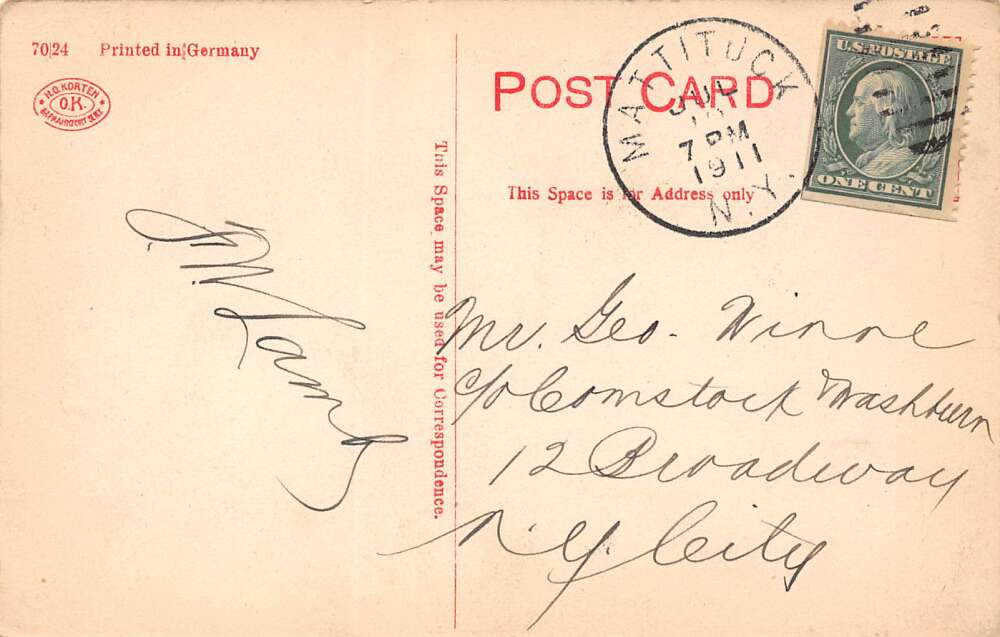 7024 Printed in Germany
H.O. KORTEN
O.K.
POST CARD
MATTITUCK
JUL
7 PM
1911
N.Y.
U.S. POSTAGE
ONE CENT
This Space is for Address only
This Space may be used for Correspondence.
Mr. Geo. Winne
c/o Comstock & Washburn
12 Broadway
N.Y. City